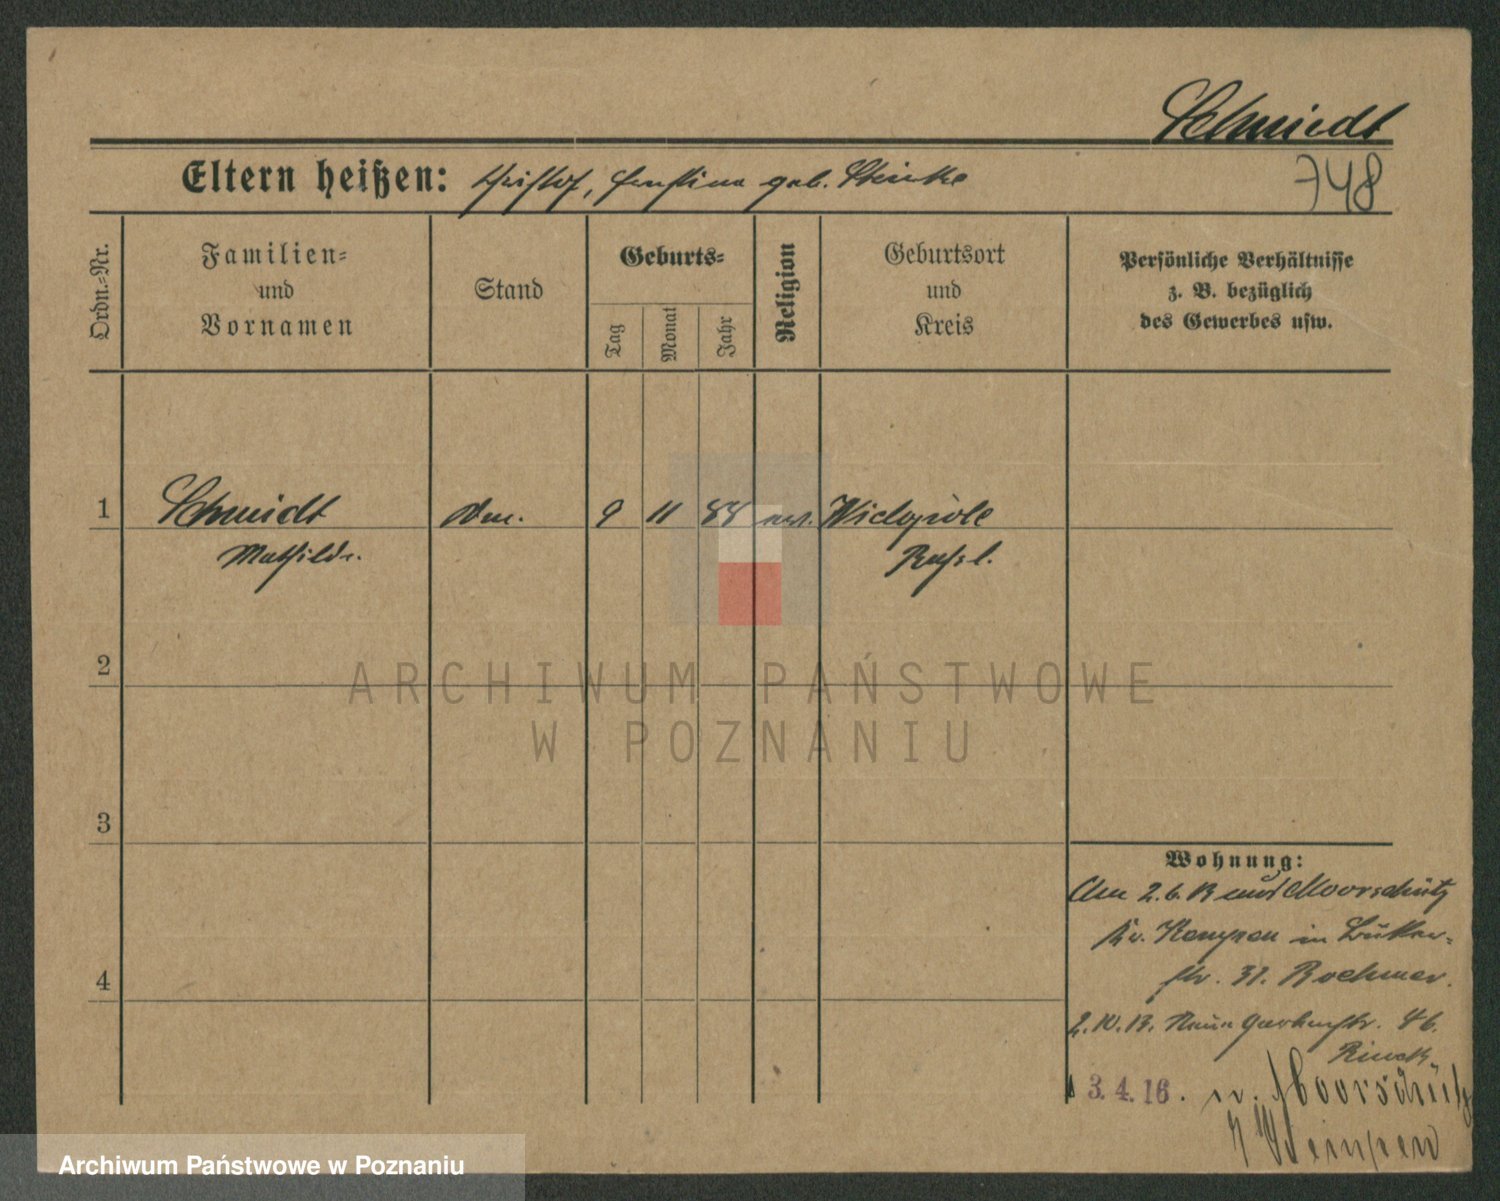 Schmiedt
748
Eltern heißen: Kristof, geb.
Ordn.-Nr.
Familien-
und
Vornamen
Stand
Geburts-
Tag
Monat
Jahr
Religion
Geburtsort
und
Kreis
Persönliche Verhältnisse
z. B. bezüglich
des Gewerbes usw.
1
Schmidt
9 11 88 ev. Wielopole
Mathilde.
Rußl.
2
ARCHIWUM PAŃSTWOWE
W POZNANIU
3
Wohnung:
2.6.13 Moorschütz
Kr. Kempen in
str. 31. Boehmer.
4
2.10.13. Neue Gartenstr.
3. 4. 16. n. Moorschütz
Kempen
Archiwum Państwowe w Poznaniu